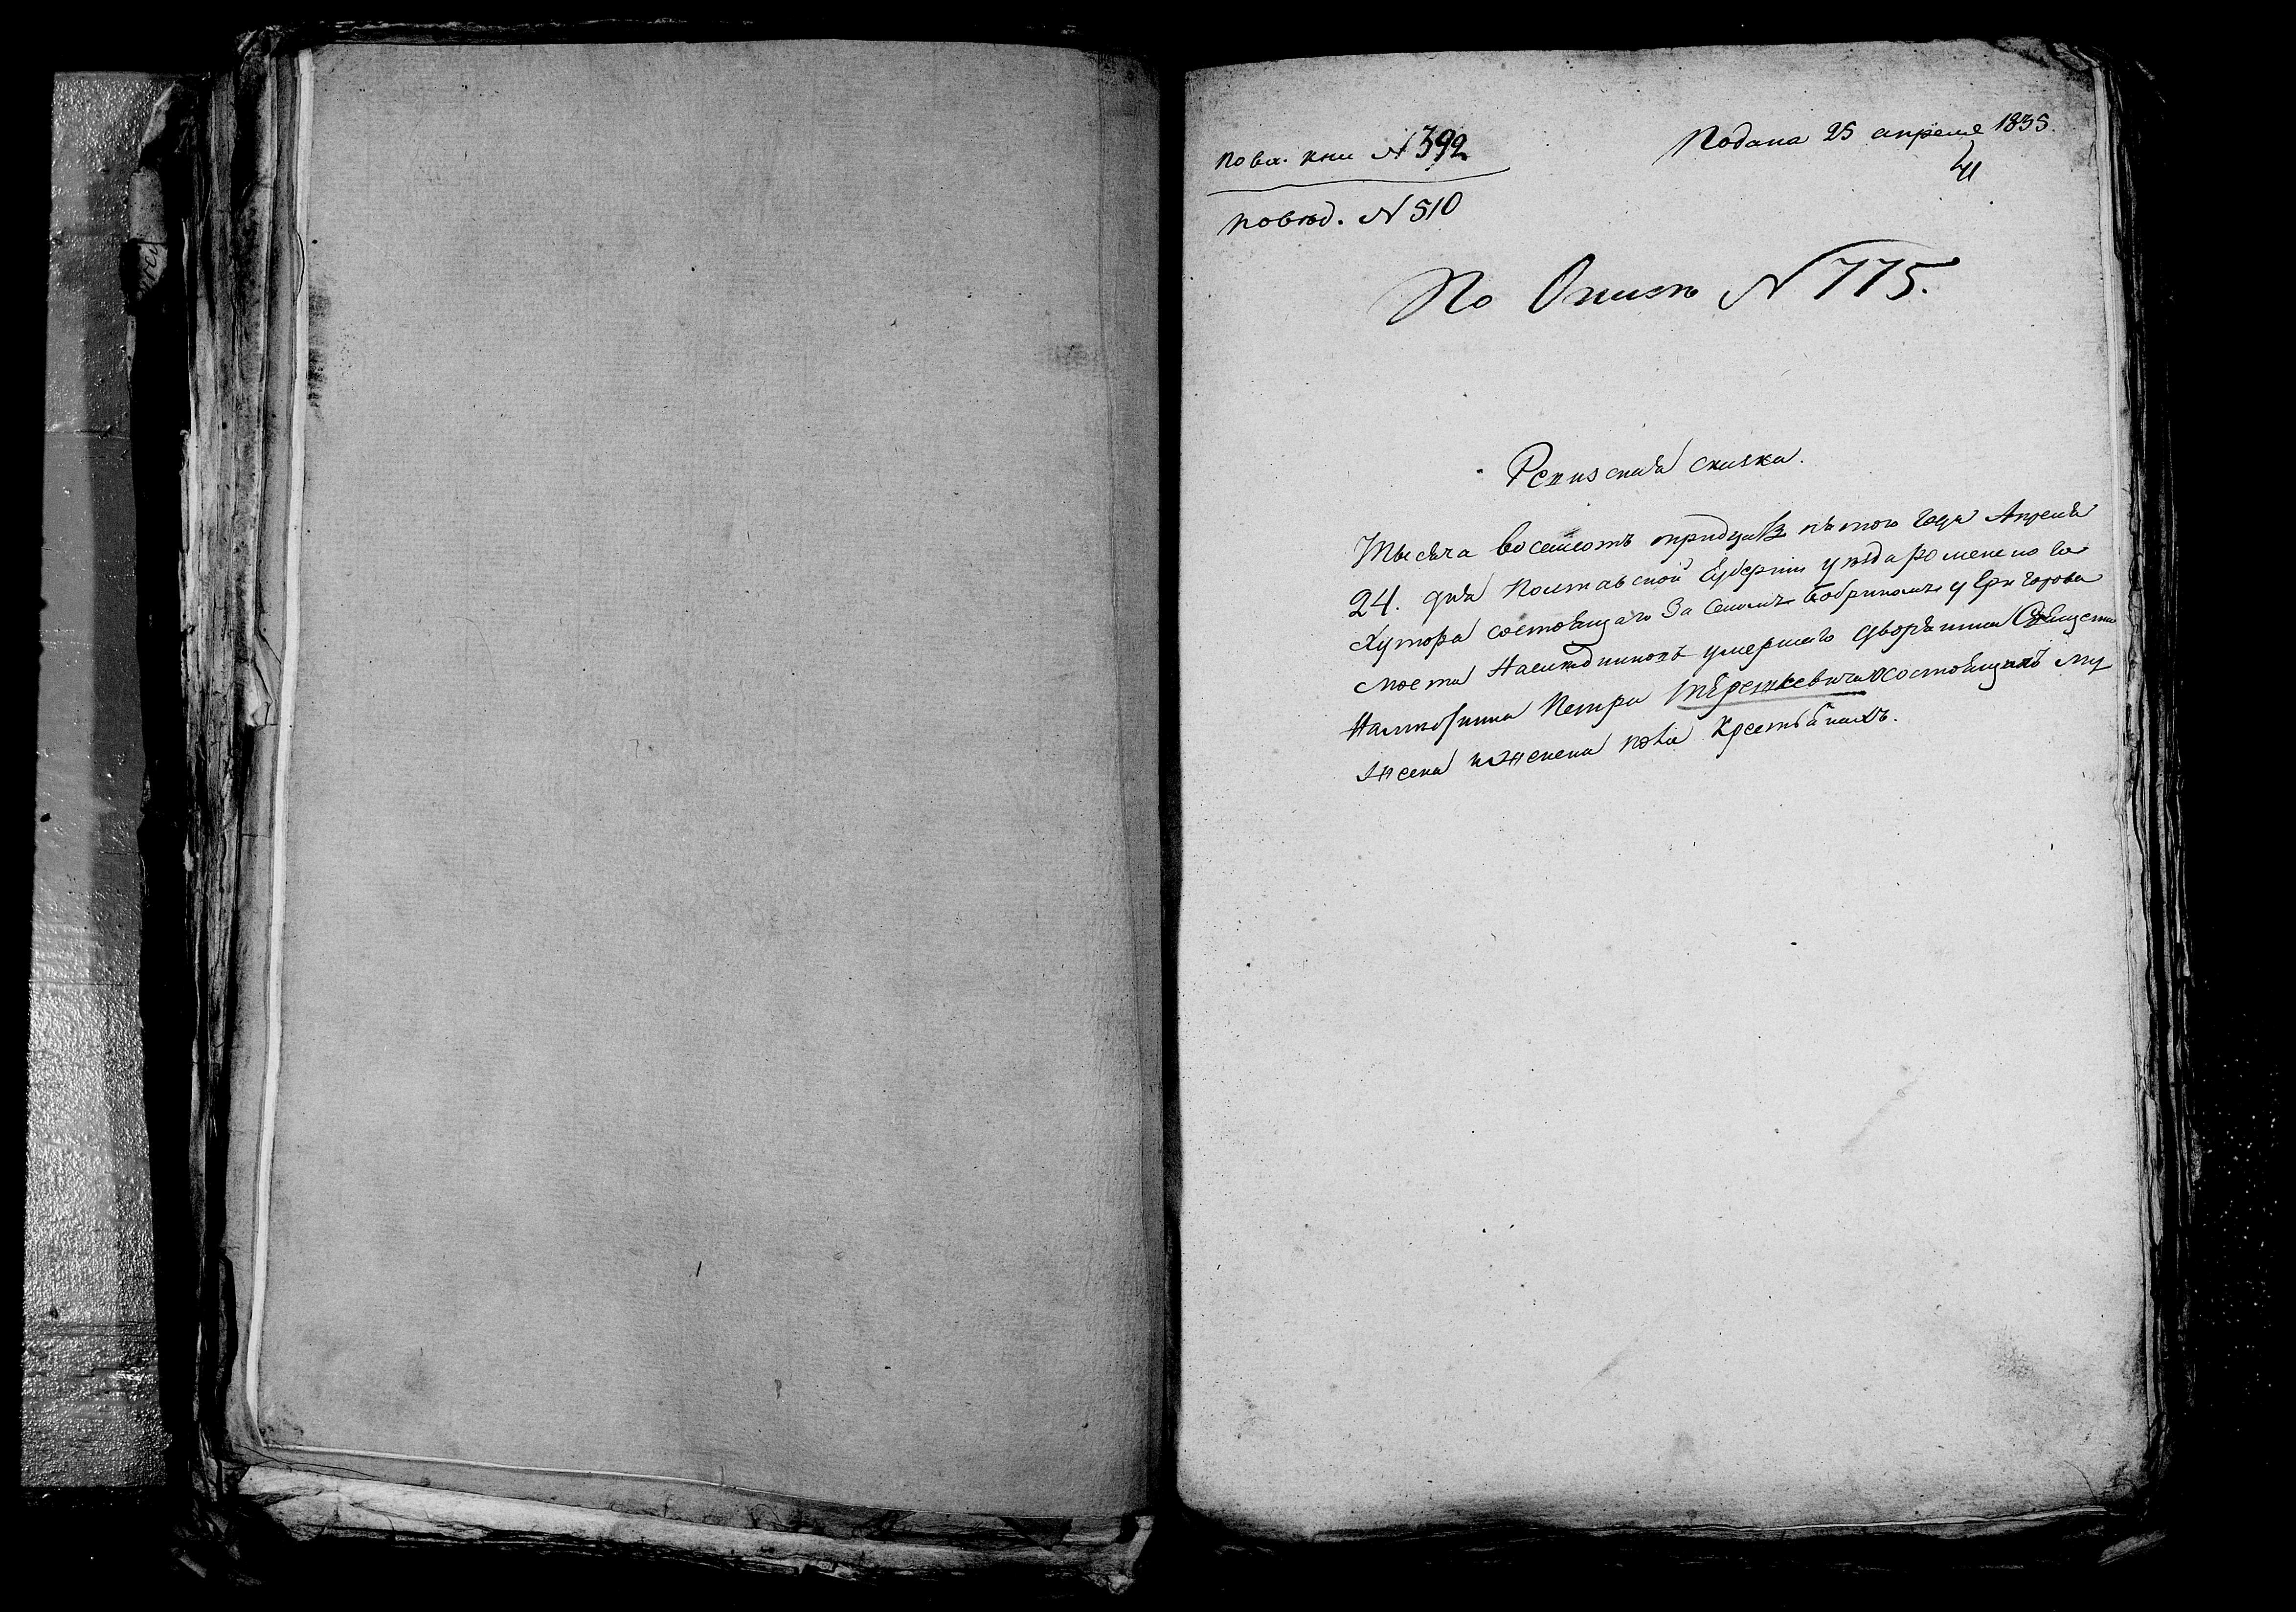 по вх. кни №392
Подана 25 апреля 1835.
41
по вѣд. №510
По Описѣ №775.
Ревизская сказка.
Тысяча восемсотъ тридцать пятого года Апреля
24. дня Полтавской Губернии уѣзда роменского
Хутора состоящаго за селомъ бобрикомъ у Григорова
моста Наслѣдниковъ умершаго дворянина
Петра состоящихъ му
жеска и женска пола Крестьянахъ.